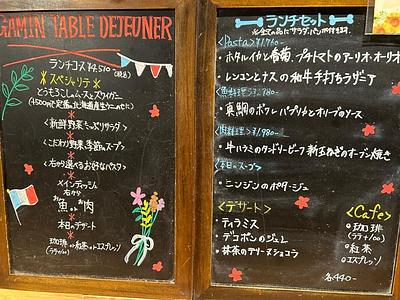 GAMIN TABLE DEJEUNER
ランチコース ¥4,510 (税込)
スペシャリテ
とうもろこしのムースとズワイガニ
<新鮮野菜たっぷりサラダ>
<こだわり野菜、季節のスープ>
<右から選べるお好きなパスタ>
メインディッシュ
右から
お魚 or お肉
本日のデザート
珈琲 or 紅茶 or エスプレッソ
ランチセット
※全ての品にサラダ、パンが付きます。
<Pasta> ¥1,760-
・ホタルイカと春菊、プチトマトのアーリオ・オーリオ
・レンコンとナスの和牛手打ちラザニア
・真鯛のポワレ パプリカとオリーブのソース
<肉料理> ¥1,980-
・牛ハラミのタンドリービーフ 新玉ねぎのオーブン焼き
<本日のスープ>
・ニンジンのポタージュ
<デザート>
・ティラミス
・デコポンのジュレ
・抹茶のテリーヌショコラ
<Cafe>
◦珈琲
◦紅茶
◦エスプレッソ
各440-